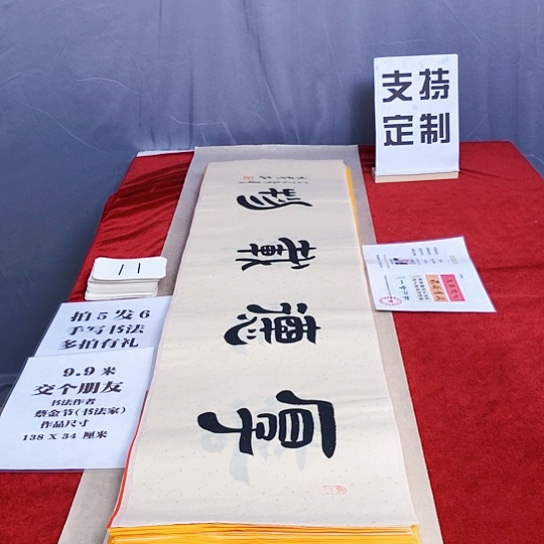 支持
定制
厚德载物
11
拍5发6
手写书法
多拍有礼
9.9米
交个朋友
书法作者
蔡金节(书法家)
作品尺寸
138 X 34 厘米